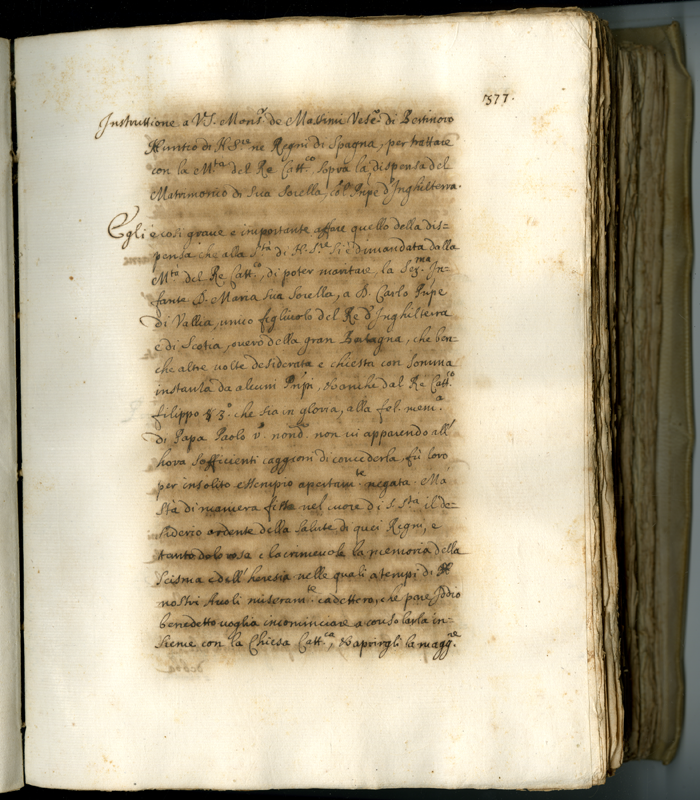 377.
Instruttione a V.S. Mons.r de Massimi Vesc.o di Bertinoro
Nuntio di N. S.re ne Regni di Spagna, per trattare
con la M.ta del Re Catt.co sopra la dispensa del
Matrimonio di sua sorella, col Inpe d'Inghilterra.
Egli è così grave e importante affare quello della dis-
pensa che alla S.tà di N. S.re si è dimandata dalla
M.ta del Re Catt.co, di poter maritare la Ser.ma In-
fante D. Maria sua sorella, a D. Carlo Pnpe
di Vallia, unico figliuolo del Re d'Inghilterra
e di Scotia, overo della gran Bertagna, che ben-
che altre volte desiderata e chiesta con somma
instanza da alcuni Pnpi, & anche dal Re Catt.co
Filippo 3.o che sia in gloria, alla fel. mem.a
di Papa Paolo V.o non vi apparendo all'
hora sofficienti caggioni di concederla, fù loro
per insolito essempio apertam.te negata. Mà
stà di maniera fitto nel cuore di S. S.tà il de-
siderio ardente della salute di quei Regni, e
tanto dolorosa e lacrimevole la memoria della
scisma e dell'heresia nelle quali a tempi di
nostri Avoli miseram.te cadettero, che pare Iddio
benedetto voglia incominciare a consolarla in-
sieme con la Chiesa Catt.ca, & aprirgli la magg.re